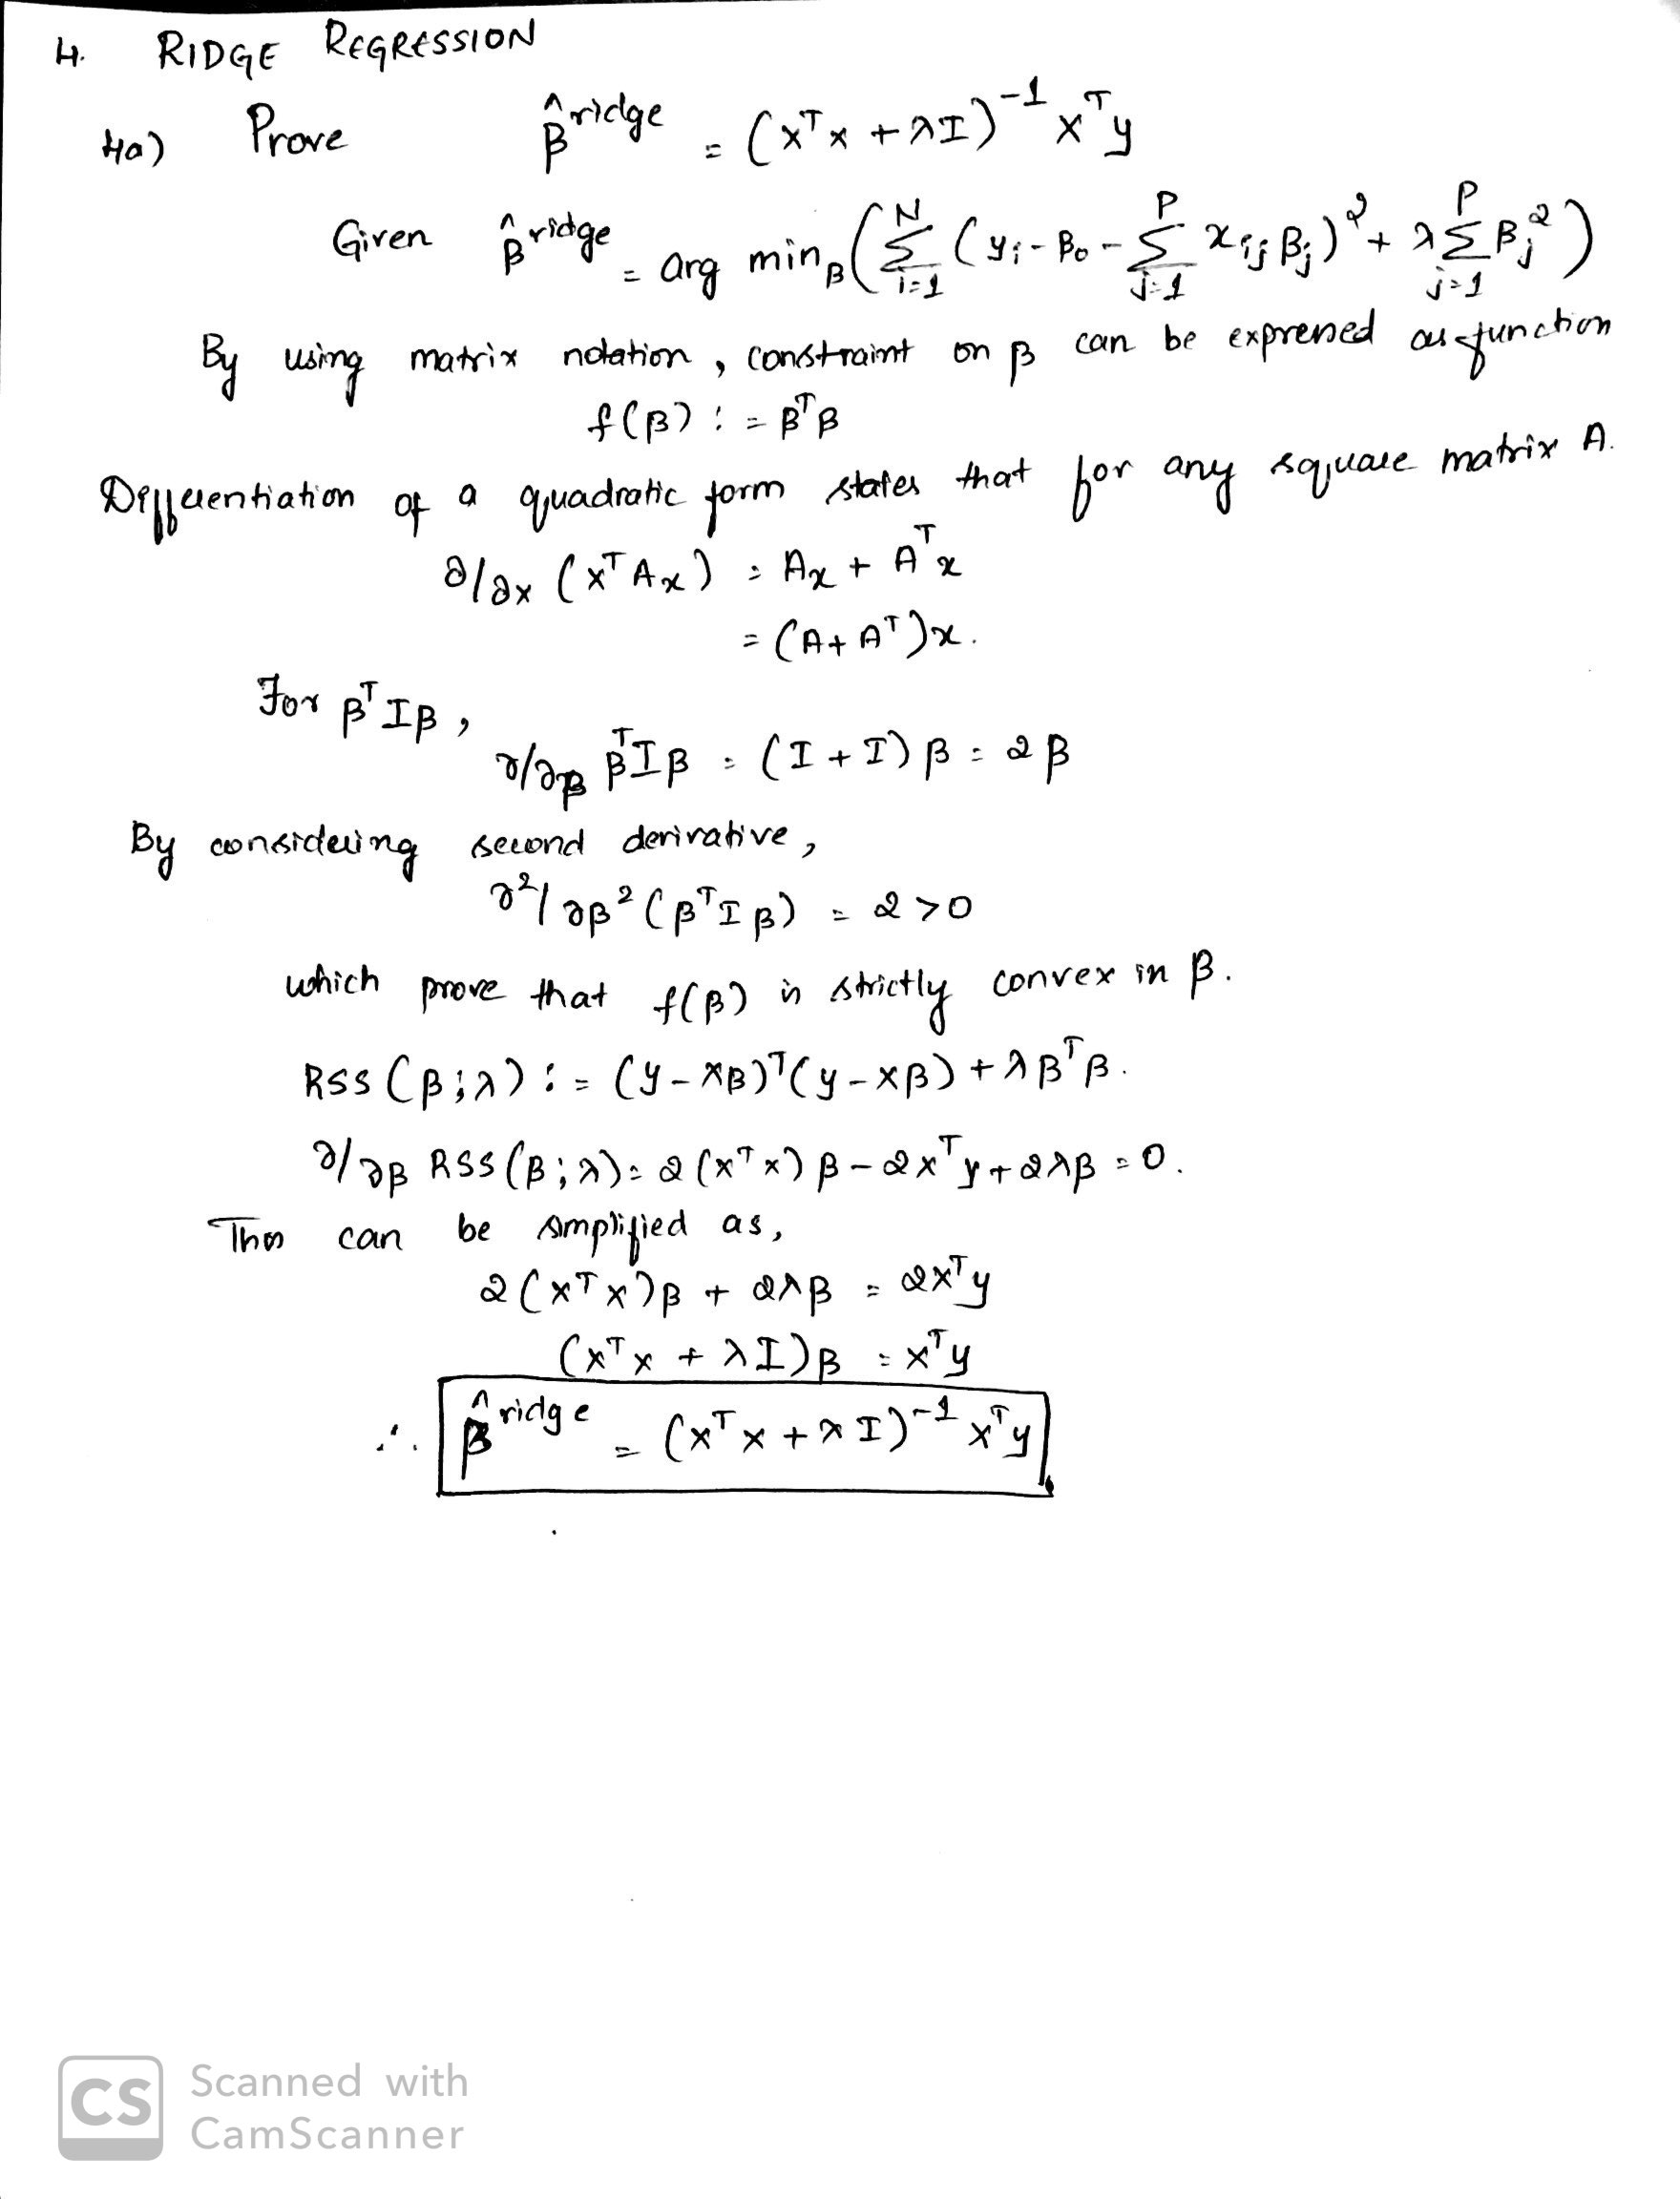 4. RIDGE REGRESSION
4a) Prove β̂^ridge = (x^T x + λI)^-1 x^T y
Given β̂^ridge = arg min_β (Σ_{i=1}^N (y_i - β_0 - Σ_{j=1}^P x_ij β_j)^2 + λ Σ_{j=1}^P β_j^2)
By using matrix notation, constraint on β can be expressed as function
f(β) := β^T β
Differentiation of a quadratic form states that for any square matrix A.
∂/∂x (x^T A x) = Ax + A^T x
= (A + A^T)x.
For β^T I β,
∂/∂β β^T I β = (I + I) β = 2β
By considering second derivative,
∂^2/∂β^2 (β^T I β) = 2 > 0
which prove that f(β) is strictly convex in β.
RSS (β; λ) := (y - Xβ)^T (y - Xβ) + λ β^T β.
∂/∂β RSS (β; λ) = 2 (x^T x) β - 2x^T y + 2λβ = 0.
This can be simplified as,
2 (x^T x) β + 2λβ = 2x^T y
(x^T x + λI) β = x^T y
∴ β̂^ridge = (x^T x + λI)^-1 x^T y.
CS Scanned with
CamScanner